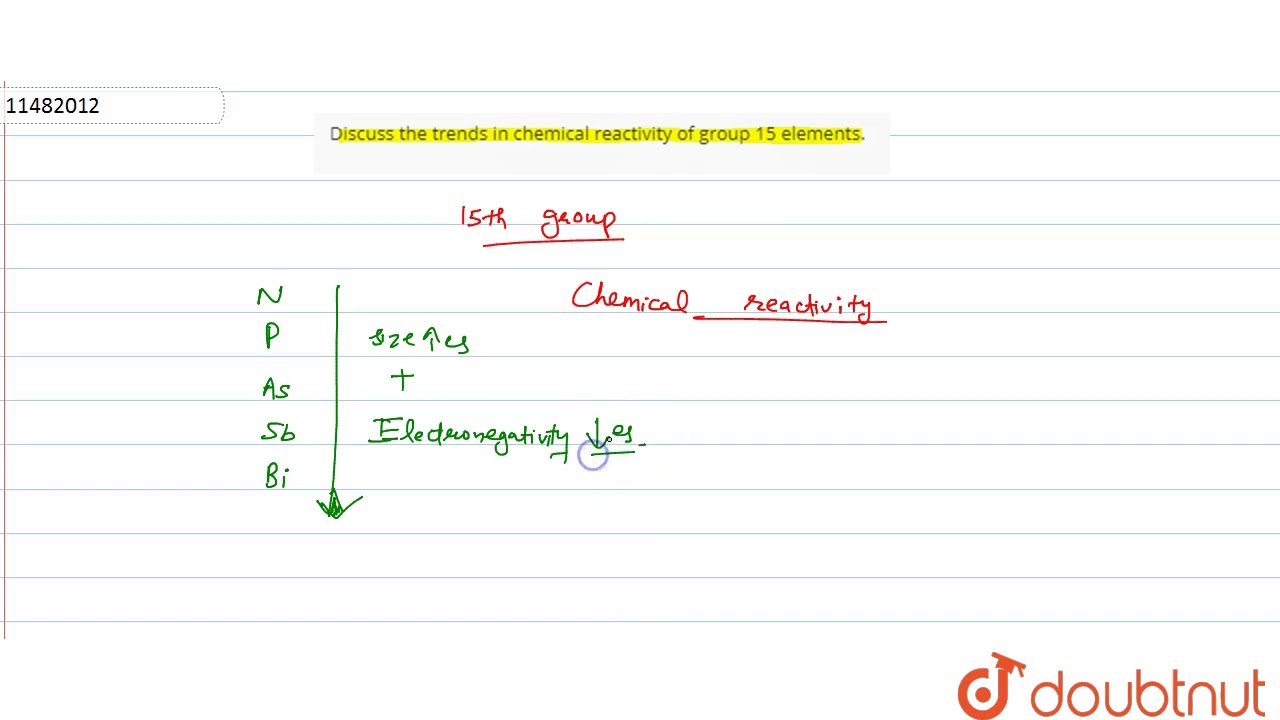 11482012
Discuss the trends in chemical reactivity of group 15 elements.
15th group
Chemical reactivity
N
P
size ↑es
+
As
Sb
Electronegativity ↓es.
Bi
doubtnut